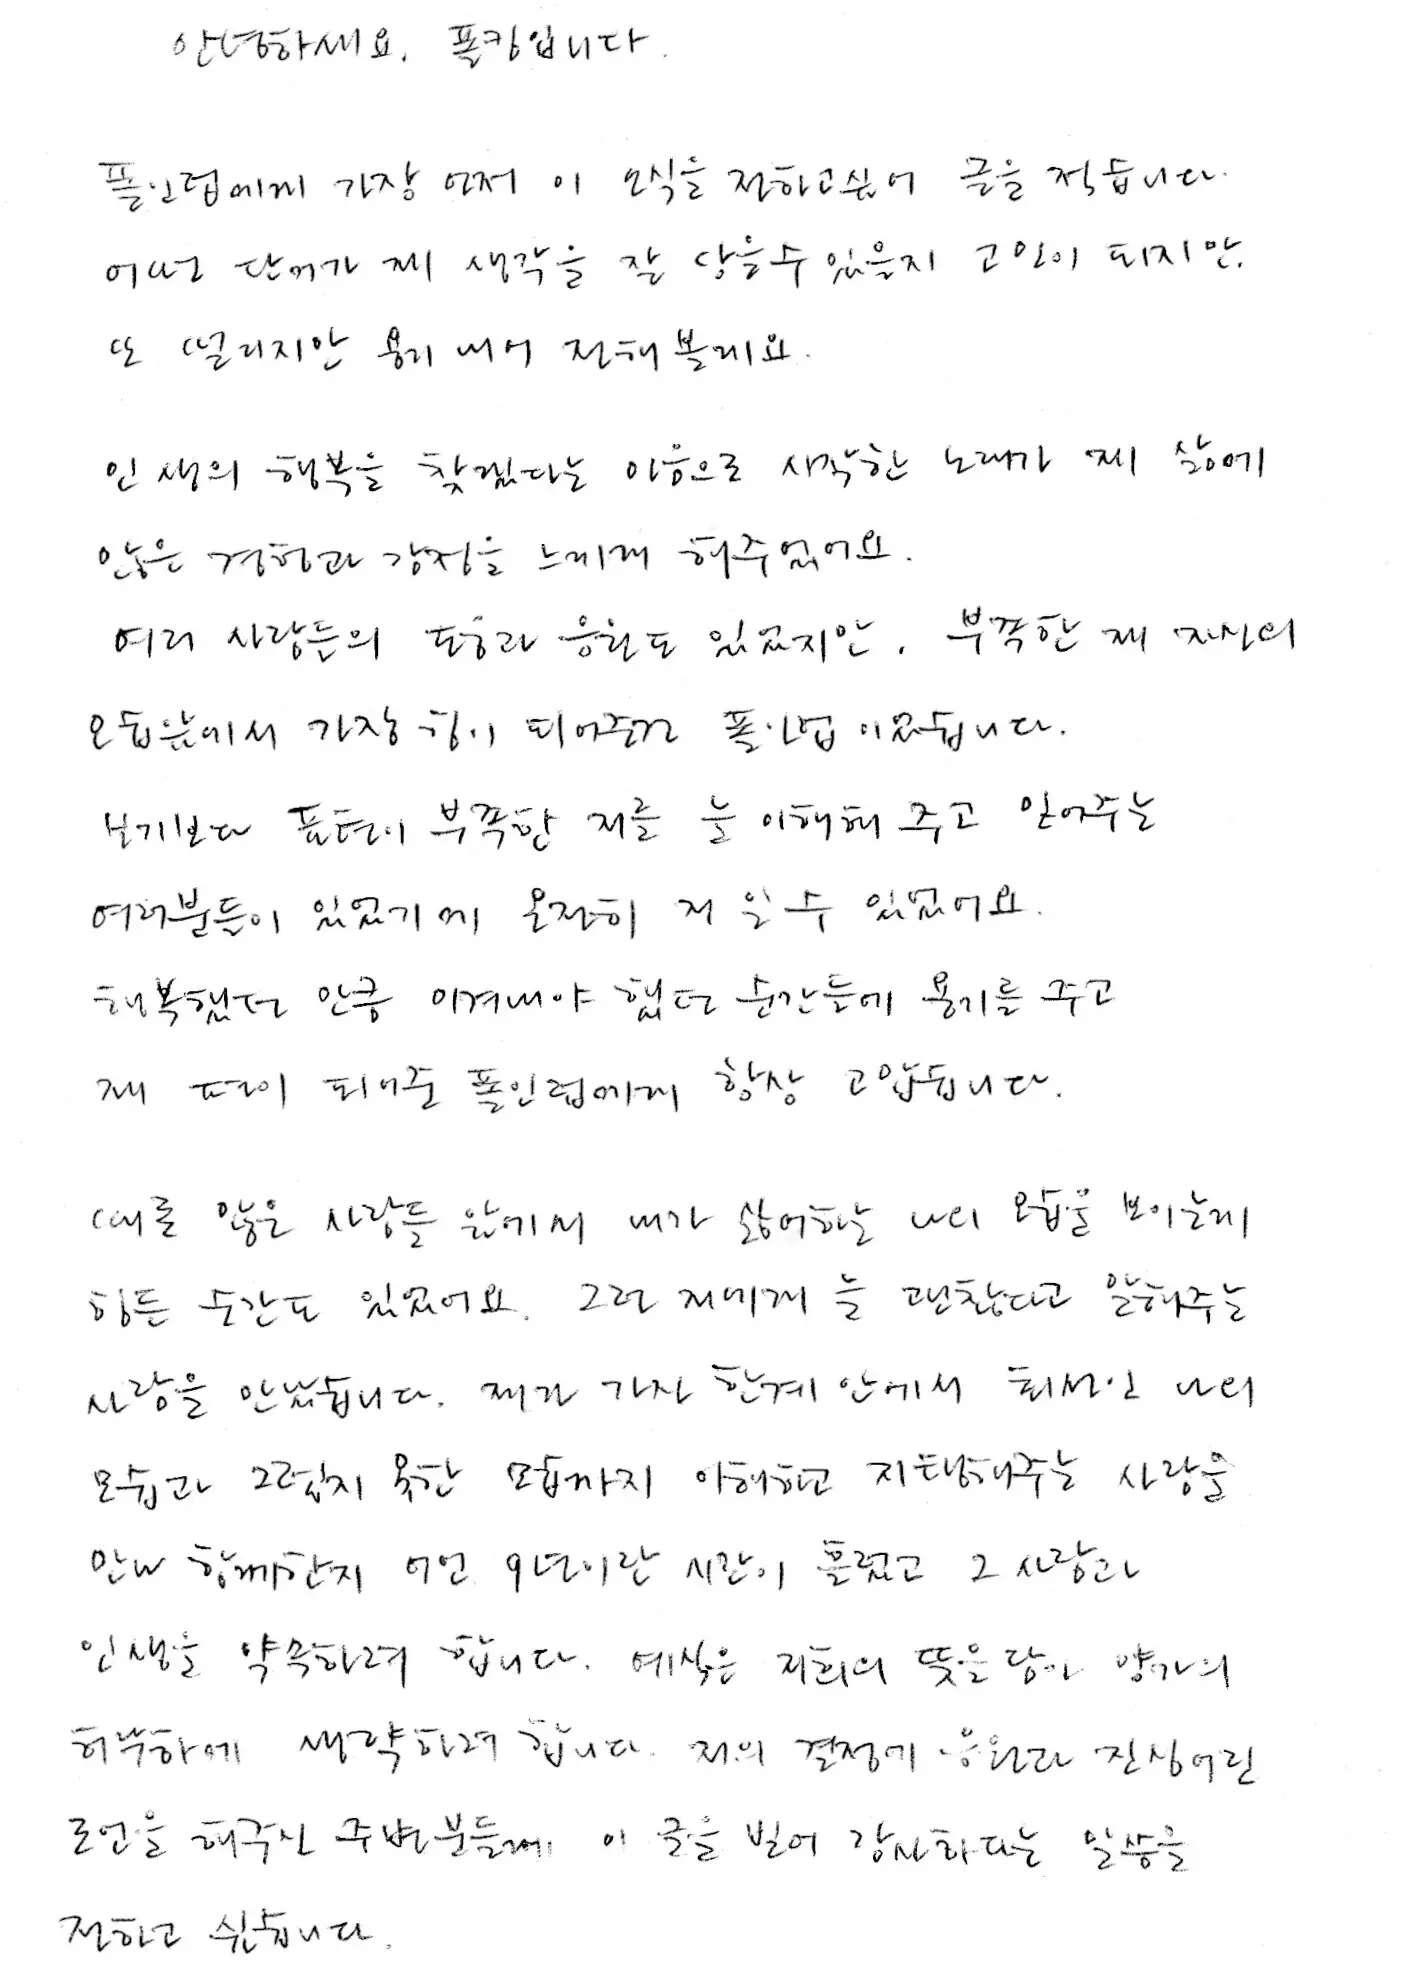 안녕하세요. 폴킴입니다.
폴인럽에게 가장 먼저 이 소식을 전하고싶어 글을 적습니다.
어떤 단어가 제 생각을 잘 담을수 있을지 고민이 되지만,
또 떨리지만 용기 내어 전해볼게요.
인생의 행복을 찾겠다는 마음으로 시작한 노래가 제 삶에
많은 경험과 감정을 느끼게 해주었어요.
여러 사람들의 도움과 응원도 있었지만, 부족한 제 자신의
모습앞에서 가장 힘이 되어준건 폴인럽이었습니다.
보기보다 표현이 부족한 저를 늘 이해해 주고 믿어주는
여러분들이 있었기에 온전히 저 일 수 있었어요.
행복했던 만큼 이겨내야 했던 순간들에 용기를 주고
제 편이 되어준 폴인럽에게 항상 고맙습니다.
때로 많은 사람들 앞에서 내가 싫어하는 나의 모습을 보이는게
힘든 순간도 있었어요. 그런 저에게 늘 괜찮다고 말해주는
사람을 만났습니다. 제가 가진 한계 안에서 최선인 나의
모습과 그렇지 못한 모습까지 이해하고 지탱해주는 사람을
만나 함께한지 어언 9년이란 시간이 흘렀고 그 사람과
인생을 약속하려 합니다. 예식은 저희의 뜻을 담아 양가의
허락하에 생략하려 합니다. 저의 결정에 응원과 진심어린
조언을 해주신 주변분들께 이 글을 빌어 감사하다는 말씀을
전하고 싶습니다.